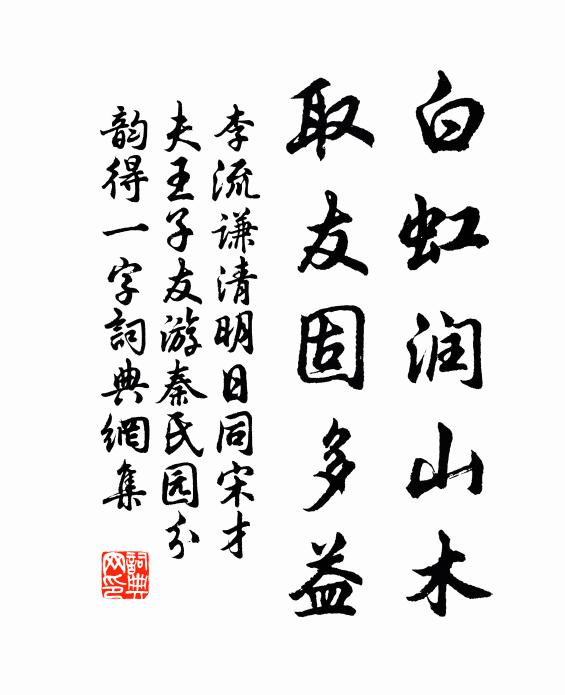 白虹润山木
取友固多益
李流谦清明日同宋才
夫王子友游秦氏园分
韵得一字詞典網集
詞典
网印